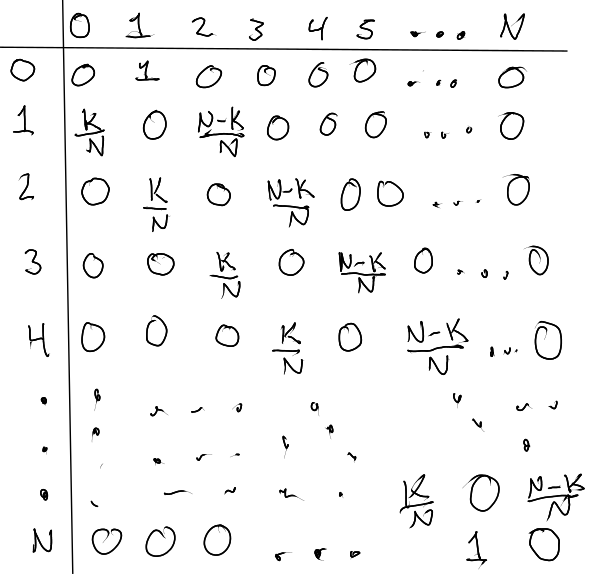 0 1 2 3 4 5 ... N
0 0 1 0 0 0 0 ... 0
1 K/N 0 N-K/N 0 0 0 ... 0
2 0 K/N 0 N-K/N 0 0 ... 0
3 0 0 K/N 0 N-K/N 0 ... 0
4 0 0 0 K/N 0 N-K/N ... 0
K/N 0 N-K/N
N 0 0 0 ... 1 0